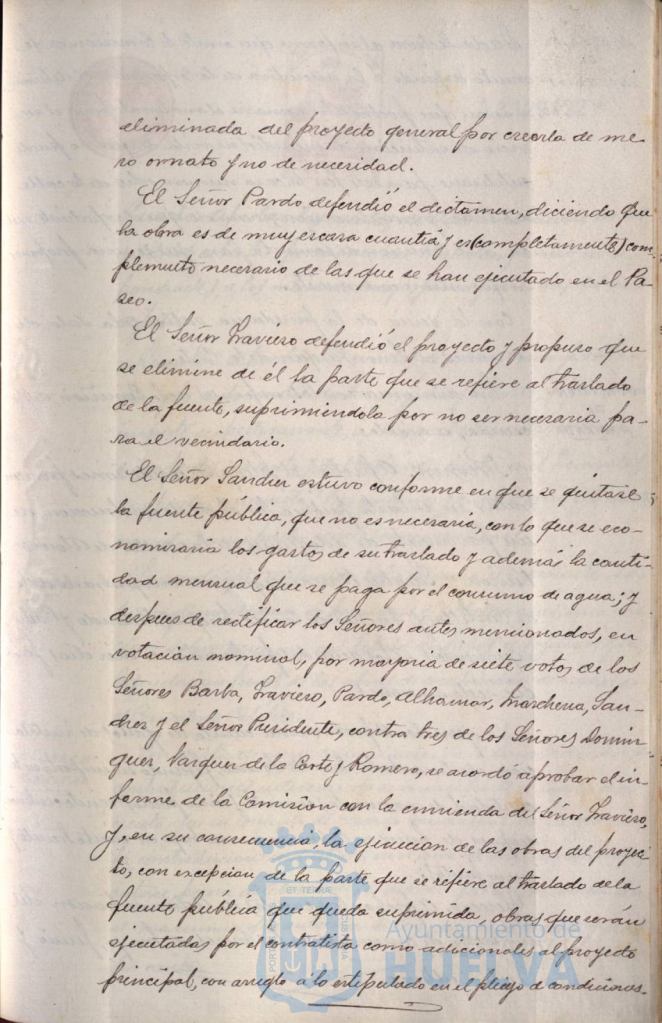 eliminada del proyecto general por creerla de me
ro ornato y no de necesidad.
El Señor Pardo defendió el dictamen, diciendo que
la obra es de muy escasa cuantia y es (completamente) com-
plemento necesario de las que se han ejecutado en el Pa-
seo.
El Señor Travieso defendió el proyecto y propuso que
se elimine de él la parte que se refiere al traslado
de la fuente, suprimiéndola por no ser necesaria pa-
ra el vecindario.
El Señor Sanchez estuvo conforme en que se quitase
la fuente pública, que no es necesaria, con lo que se eco-
nomizaria los gastos de su traslado y además la canti-
dad mensual que se paga por el consumo de agua; y
despues de rectificar los Señores antes mencionados, en
votacion nominal, por mayoria de siete votos de los
Señores Barba, Travieso, Pardo, Alhamar, Marchena, San-
chez y el Señor Presidente, contra tres de los Señores Domin-
guez, Vazquez de la Corte y Romero, se acordó aprobar el in-
forme de la Comision con la enmienda del Señor Travieso,
y, en su consecuencia, la ejecucion de las obras del proyec-
to, con excepcion de la parte que se refiere al traslado de la
fuente pública que queda suprimida, obras que serán
ejecutadas por el contratista como adicionales al proyecto
principal, con arreglo á lo estipulado en el pliego de condiciones.
Ayuntamiento de
HUELVA